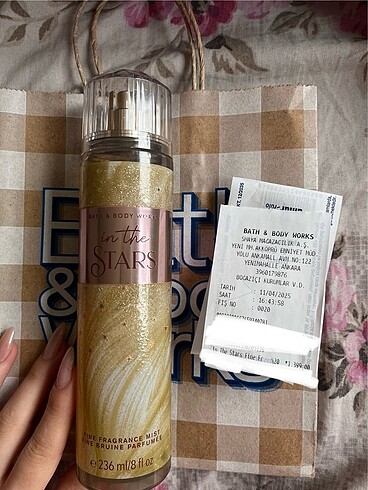 BATH & BODY WORKS
in the
STARS
FINE FRAGRANCE MIST
BRUINE PARFUMÉE
e 236 ml/8 fl oz
BATH & BODY WORKS
SHAYA MAĞAZACILIK A.Ş.
YENİ MH.AKKÖPRÜ EMNİYET MÜD
YOLU ANKAMALL AVM NO:122
YENİMAHALLE ANKARA
3960179876
BOĞAZİÇİ KURUMLAR V.D.
TARİH : 11/04/2025
SAAT : 16:43:58
FİŞ NO : 0020
In The Stars Fine Fr %20 *1.399,00